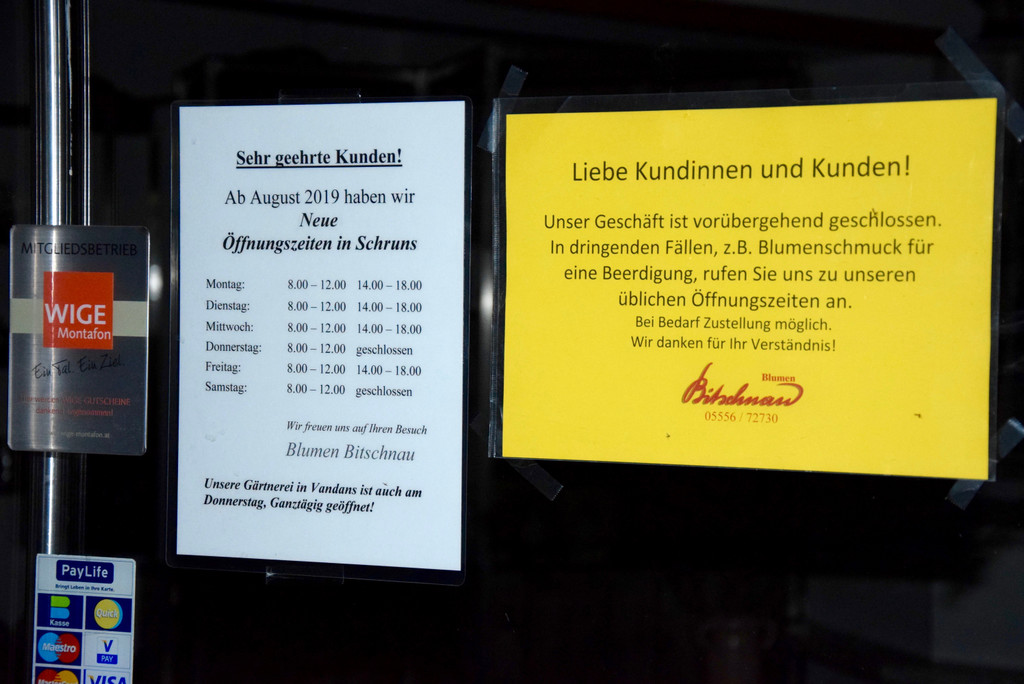 MITGLIEDSBETRIEB
WIGE
Montafon
Ein Tal. Ein Ziel.
PayLife
Bringt Leben in Ihre Karte.
Kasse
Quick
Maestro
V
PAY
MasterCard
VISA
Sehr geehrte Kunden!
Ab August 2019 haben wir
Neue
Öffnungszeiten in Schruns
Montag: 8.00 – 12.00 14.00 – 18.00
Dienstag: 8.00 – 12.00 14.00 – 18.00
Mittwoch: 8.00 – 12.00 14.00 – 18.00
Donnerstag: 8.00 – 12.00 geschlossen
Freitag: 8.00 – 12.00 14.00 – 18.00
Samstag: 8.00 – 12.00 geschlossen
Wir freuen uns auf Ihren Besuch
Blumen Bitschnau
Unsere Gärtnerei in Vandans ist auch am
Donnerstag, Ganztägig geöffnet!
Liebe Kundinnen und Kunden!
Unser Geschäft ist vorübergehend geschlossen.
In dringenden Fällen, z.B. Blumenschmuck für
eine Beerdigung, rufen Sie uns zu unseren
üblichen Öffnungszeiten an.
Bei Bedarf Zustellung möglich.
Wir danken für Ihr Verständnis!
Blumen
Bitschnau
05556 / 72730